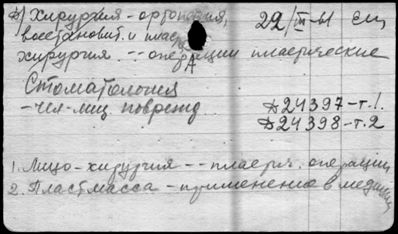 в) Хирургия - ортопедия, 22/III-61 ЕЩ
восстановит. и плас
хирургия -- операции пластические
Стоматология
- чел-лиц поврежд
Д24397-т.1.
Д24398-т.2
1. Лицо - хирургия -- пластич. операции
2. Пластмасса - применение в медицин